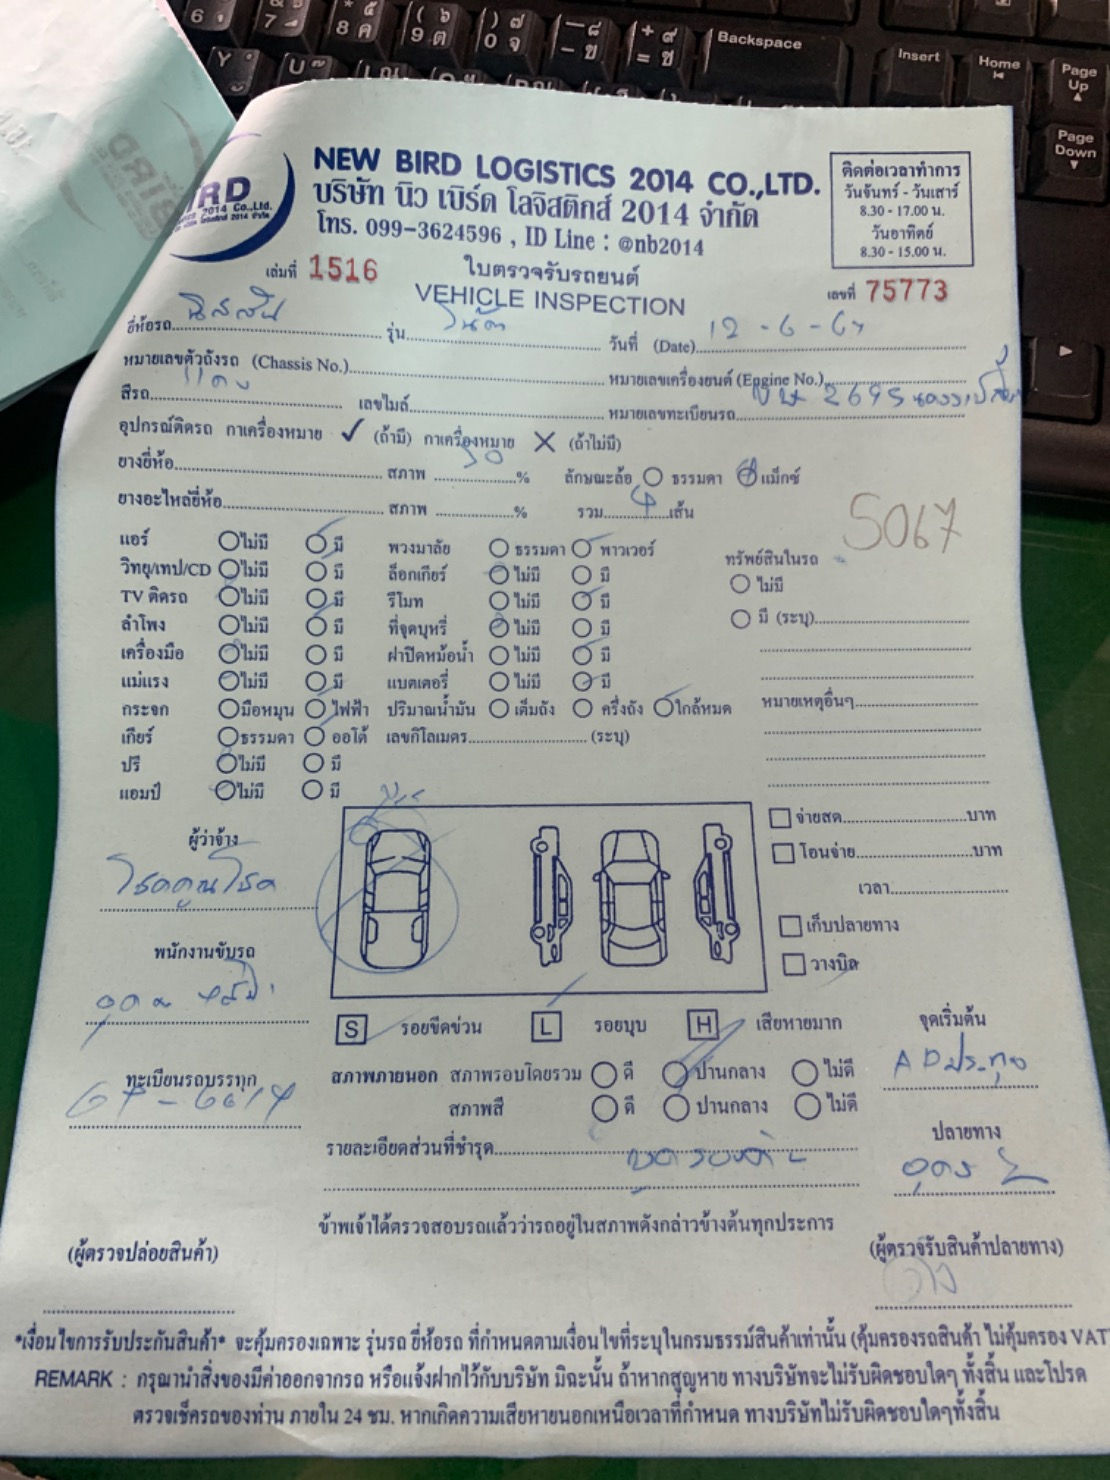 NEW BIRD LOGISTICS 2014 CO.,LTD.
บริษัท นิว เบิร์ด โลจิสติกส์ 2014 จำกัด
โทร. 099-3624596 , ID Line : @nb2014
ติดต่อเวลาทำการ
วันจันทร์ - วันเสาร์
8.30 - 17.00 น.
วันอาทิตย์
8.30 - 15.00 น.
เล่มที่ 1516
ใบตรวจรับรถยนต์
VEHICLE INSPECTION
เลขที่ 75773
ยี่ห้อรถ นิสสัน รุ่น วันที่ (Date) 12-6-67
หมายเลขตัวถังรถ (Chassis No.) หมายเลขเครื่องยนต์ (Engine No.)
สีรถ แดง เลขไมล์ หมายเลขทะเบียนรถ 2695
อุปกรณ์ติดรถ กาเครื่องหมาย ✓ (ถ้ามี) กาเครื่องหมาย ✕ (ถ้าไม่มี)
ยางยี่ห้อ สภาพ 50 % ลักษณะล้อ ธรรมดา แม็กซ์
ยางอะไหล่ยี่ห้อ สภาพ % รวม 4 เส้น
5067
แอร์ ไม่มี มี พวงมาลัย ธรรมดา พาวเวอร์ ทรัพย์สินในรถ
วิทยุ/เทป/CD ไม่มี มี ล็อกเกียร์ ไม่มี มี ไม่มี
TV ติดรถ ไม่มี มี รีโมท ไม่มี มี มี (ระบุ)
ลำโพง ไม่มี มี ที่จุดบุหรี่ ไม่มี มี
เครื่องมือ ไม่มี มี ฝาปิดหม้อน้ำ ไม่มี มี
แม่แรง ไม่มี มี แบตเตอรี่ ไม่มี มี
กระจก มือหมุน ไฟฟ้า ปริมาณน้ำมัน เต็มถัง ครึ่งถัง ใกล้หมด หมายเหตุอื่นๆ
เกียร์ ธรรมดา ออโต้ เลขกิโลเมตร (ระบุ)
ปรี ไม่มี มี
แอมป์ ไม่มี มี
จ่ายสด บาท
โอนจ่าย บาท
เวลา
เก็บปลายทาง
วางบิล
ผู้ว่าจ้าง
โชคคูณโชค
พนักงานขับรถ
ทะเบียนรถบรรทุก
S รอยขีดข่วน L รอยบุบ H เสียหายมาก
จุดเริ่มต้น
AD ประทุม
สภาพภายนอก สภาพรอบโดยรวม ดี ปานกลาง ไม่ดี
สภาพสี ดี ปานกลาง ไม่ดี
รายละเอียดส่วนที่ชำรุด
ปลายทาง
อุดร
ข้าพเจ้าได้ตรวจสอบรถแล้วว่ารถอยู่ในสภาพดังกล่าวข้างต้นทุกประการ
(ผู้ตรวจปล่อยสินค้า) (ผู้ตรวจรับสินค้าปลายทาง)
*เงื่อนไขการรับประกันสินค้า* จะคุ้มครองเฉพาะ รุ่นรถ ยี่ห้อรถ ที่กำหนดตามเงื่อนไขที่ระบุในกรมธรรม์สินค้าเท่านั้น (คุ้มครองรถสินค้า ไม่คุ้มครอง VAT
REMARK : กรุณานำสิ่งของมีค่าออกจากรถ หรือแจ้งฝากไว้กับบริษัท มิฉะนั้น ถ้าหากสูญหาย ทางบริษัทจะไม่รับผิดชอบใดๆ ทั้งสิ้น และโปรด
ตรวจเช็ครถของท่าน ภายใน 24 ชม. หากเกิดความเสียหายนอกเหนือเวลาที่กำหนด ทางบริษัทไม่รับผิดชอบใดๆทั้งสิ้น